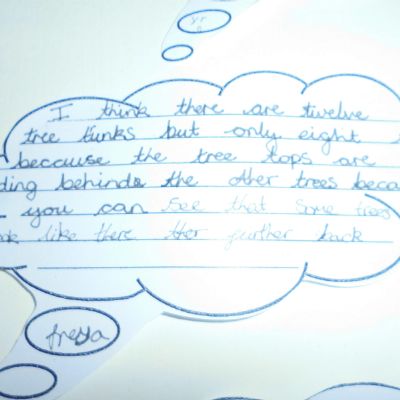 yr
I think there are twelve
tree tunks but only eight
beccause the tree tops are
ding behinds the other trees beca
you can see that some trees
ok like there ther further back
freya